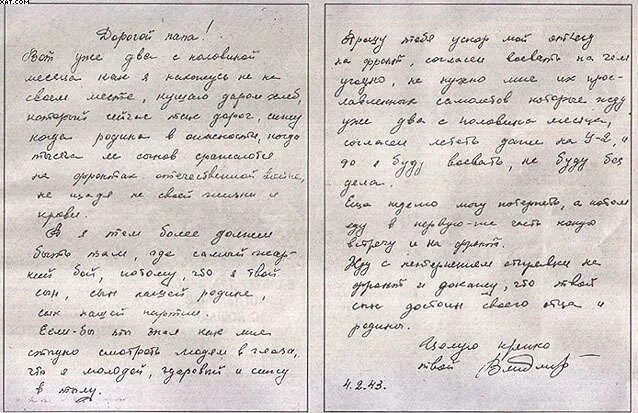 XAT.COM
Дорогой папа!
Вот уже два с половиной
месяца как я нахожусь не на
своем месте, кушаю даром хлеб,
который сейчас так дорог, сижу
когда родина в опасности, когда
тысячи ее сынов сражаются
на фронтах отечественной войны,
не щадя не своей жизни и
крови.
А я тем более должен
быть там, где самый жар-
кий бой, потому, что я твой
сын, сын нашей родине,
сын нашей партии.
Если-бы ты знал как мне
стыдно смотреть людям в глаза,
что я молодой, здоровый и сижу
в тылу.
Прошу тебя ускор мой отъезд
на фронт, согласен воевать на чем
угодно, не нужно мне их прос-
лавленных самолетов которые жду
уже два с половина месяца,
согласен лететь даже на У-2, и
до я буду воевать, не буду без
дела.
Еще неделю могу потерпеть, а потом
еду в первую-же часть какую
встречу и на фронт.
Жду с нетерпением отправки на
фронт и докажу, что твой
сын достоин своего отца и
родины.
Целую крепко
твой Владимир
4.2.43.